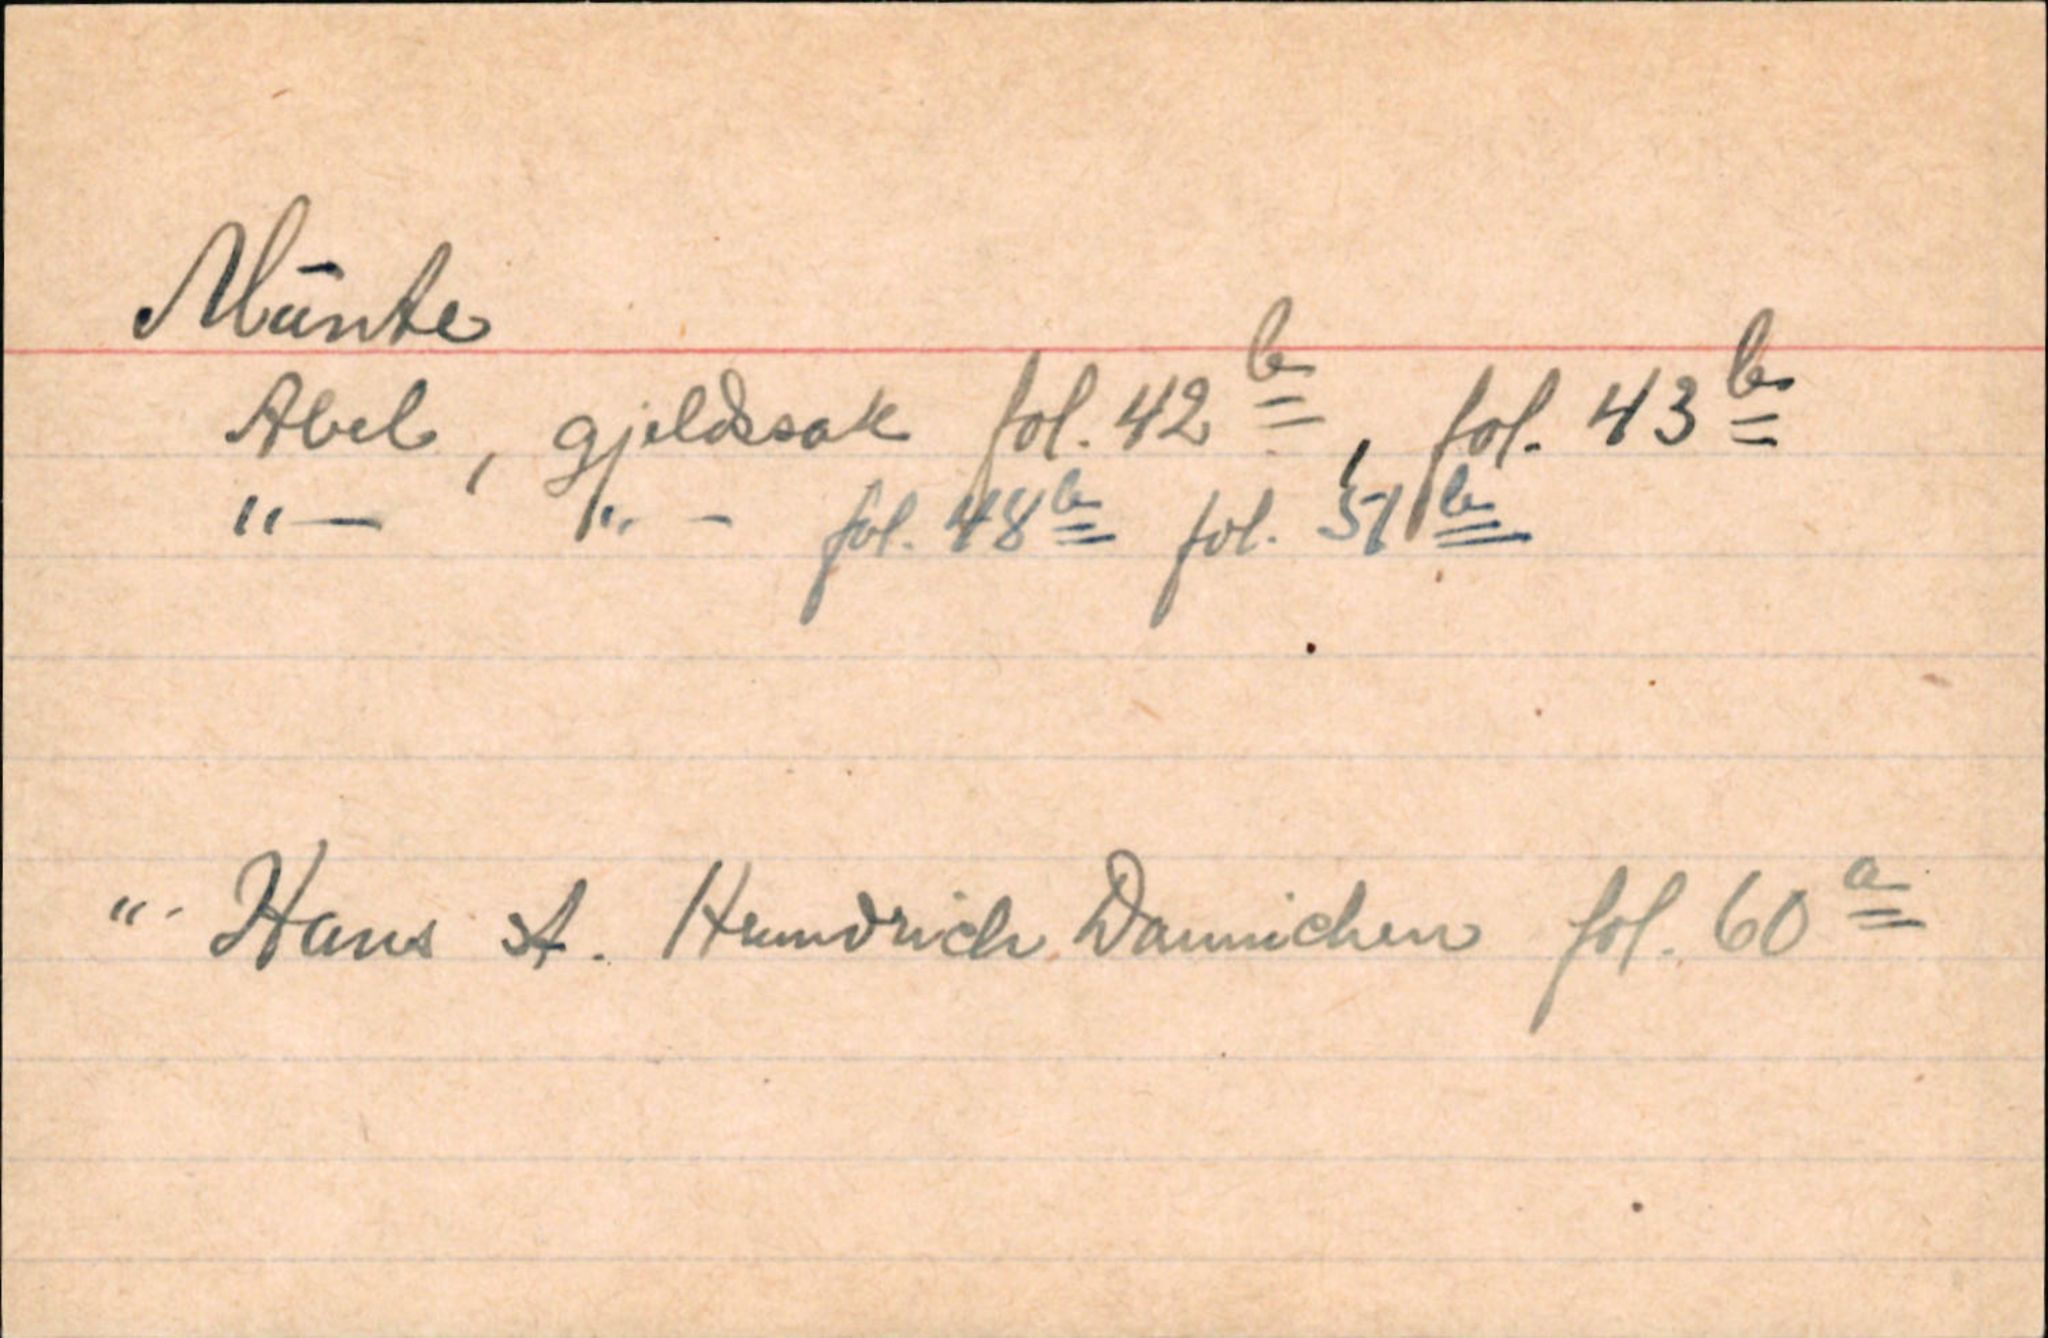 Münte
Abel, gjeldssak fol. 42 b, fol. 43 b
"— "— fol. 48 b fol. 51 b
"- Hans st. Henndrich Dannichen fol. 60 a